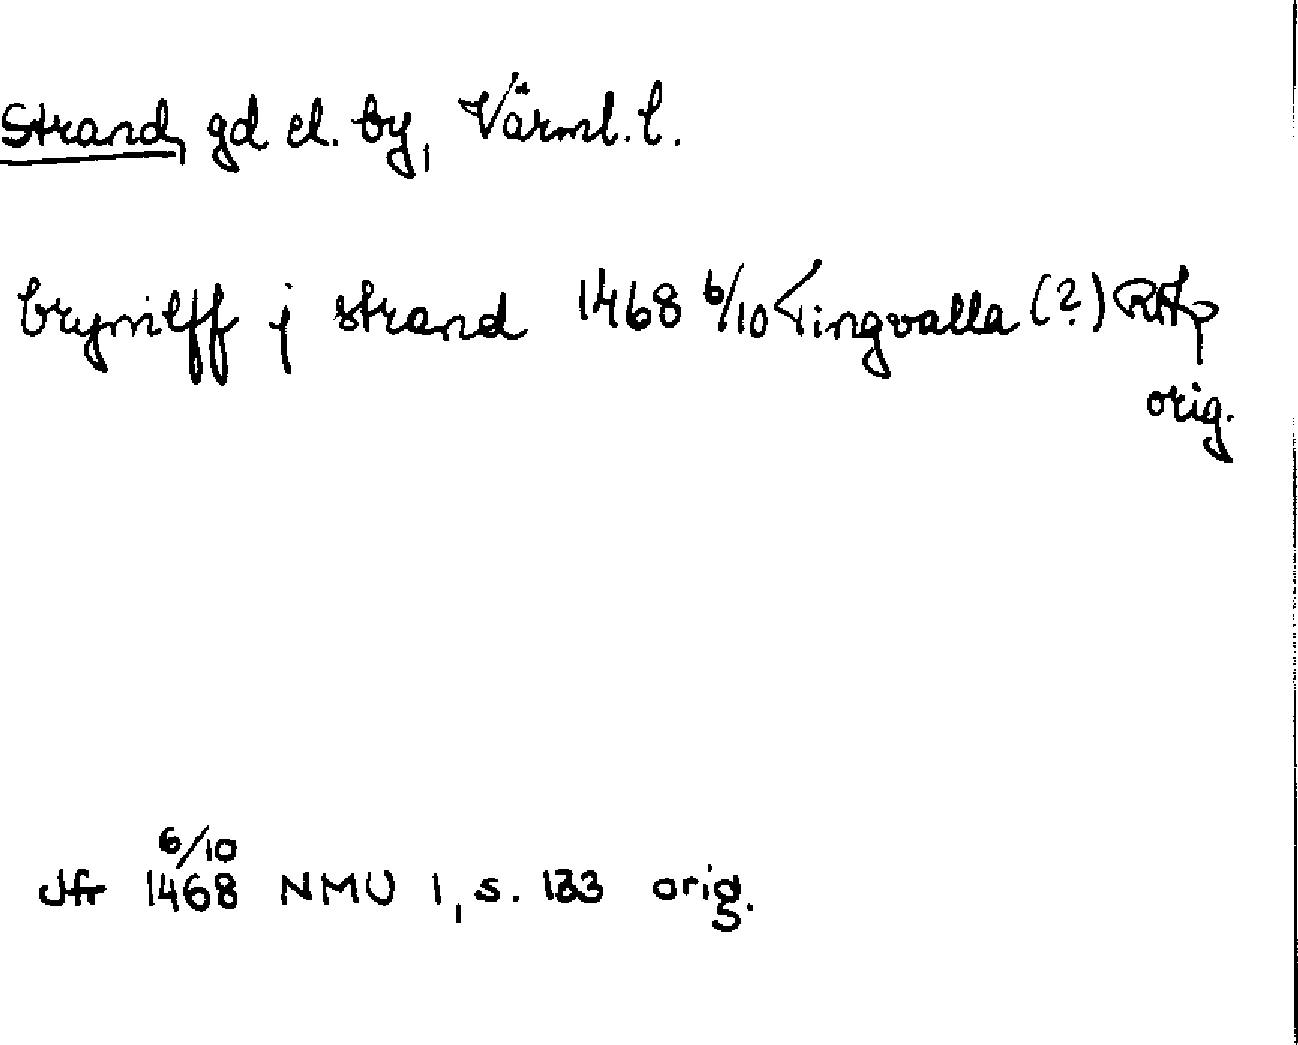 Strand, gd el. by, Värml. l.
brynilff j strand 1468 6/10 Tingvalla (?) RAp
orig.
6/10
Jfr 1468 NMU 1, s. 133 orig.